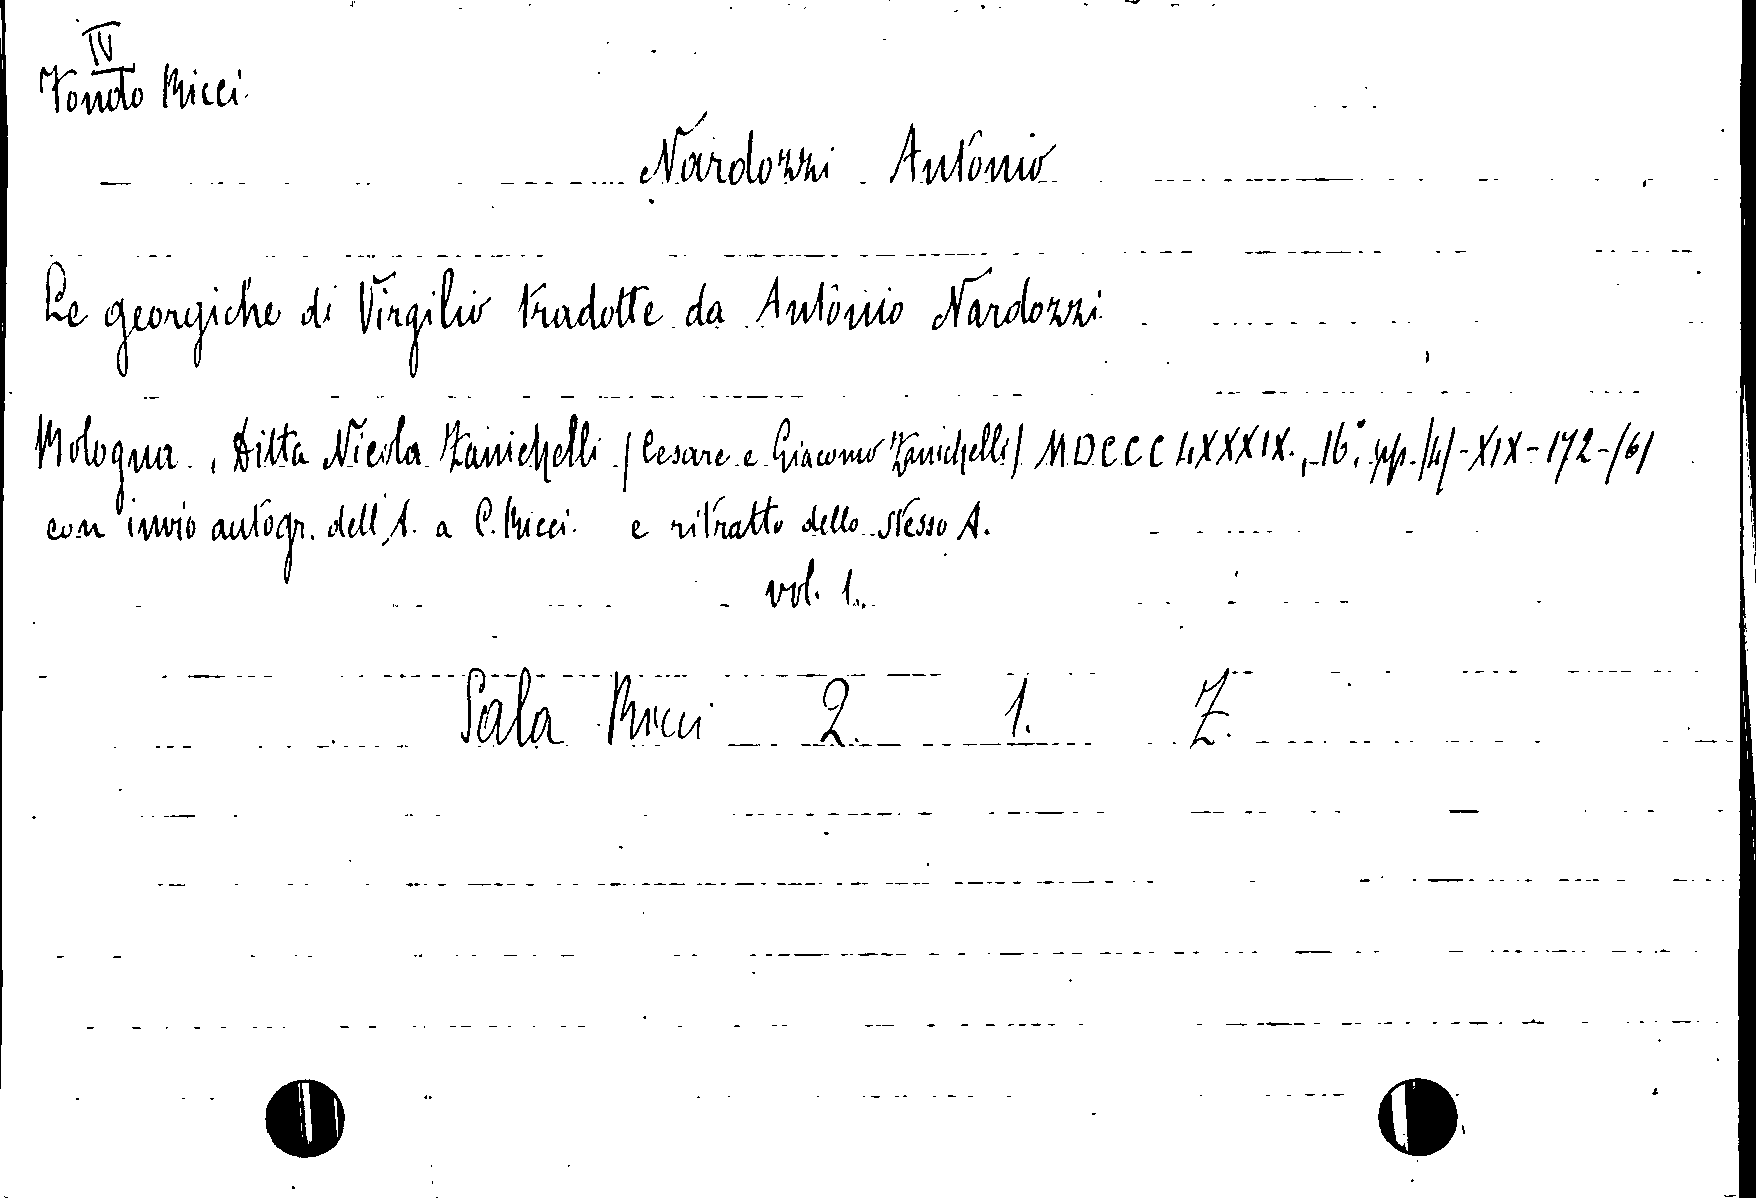 IV
Fondo Ricci
Nardozzi Antonio
Le georgiche di Virgilio tradotte da Antonio Nardozzi
Bologna, Ditta Nicola Zanichelli (Cesare e Giacomo Zanichelli) MDCCCLXXXIX., 16°, pp. (4)-XIX-172-(6)
con invio autogr. dell'A. a C. Ricci. e ritratto dello stesso A.
vol. 1.
Sala Ricci 2. 1. Z.